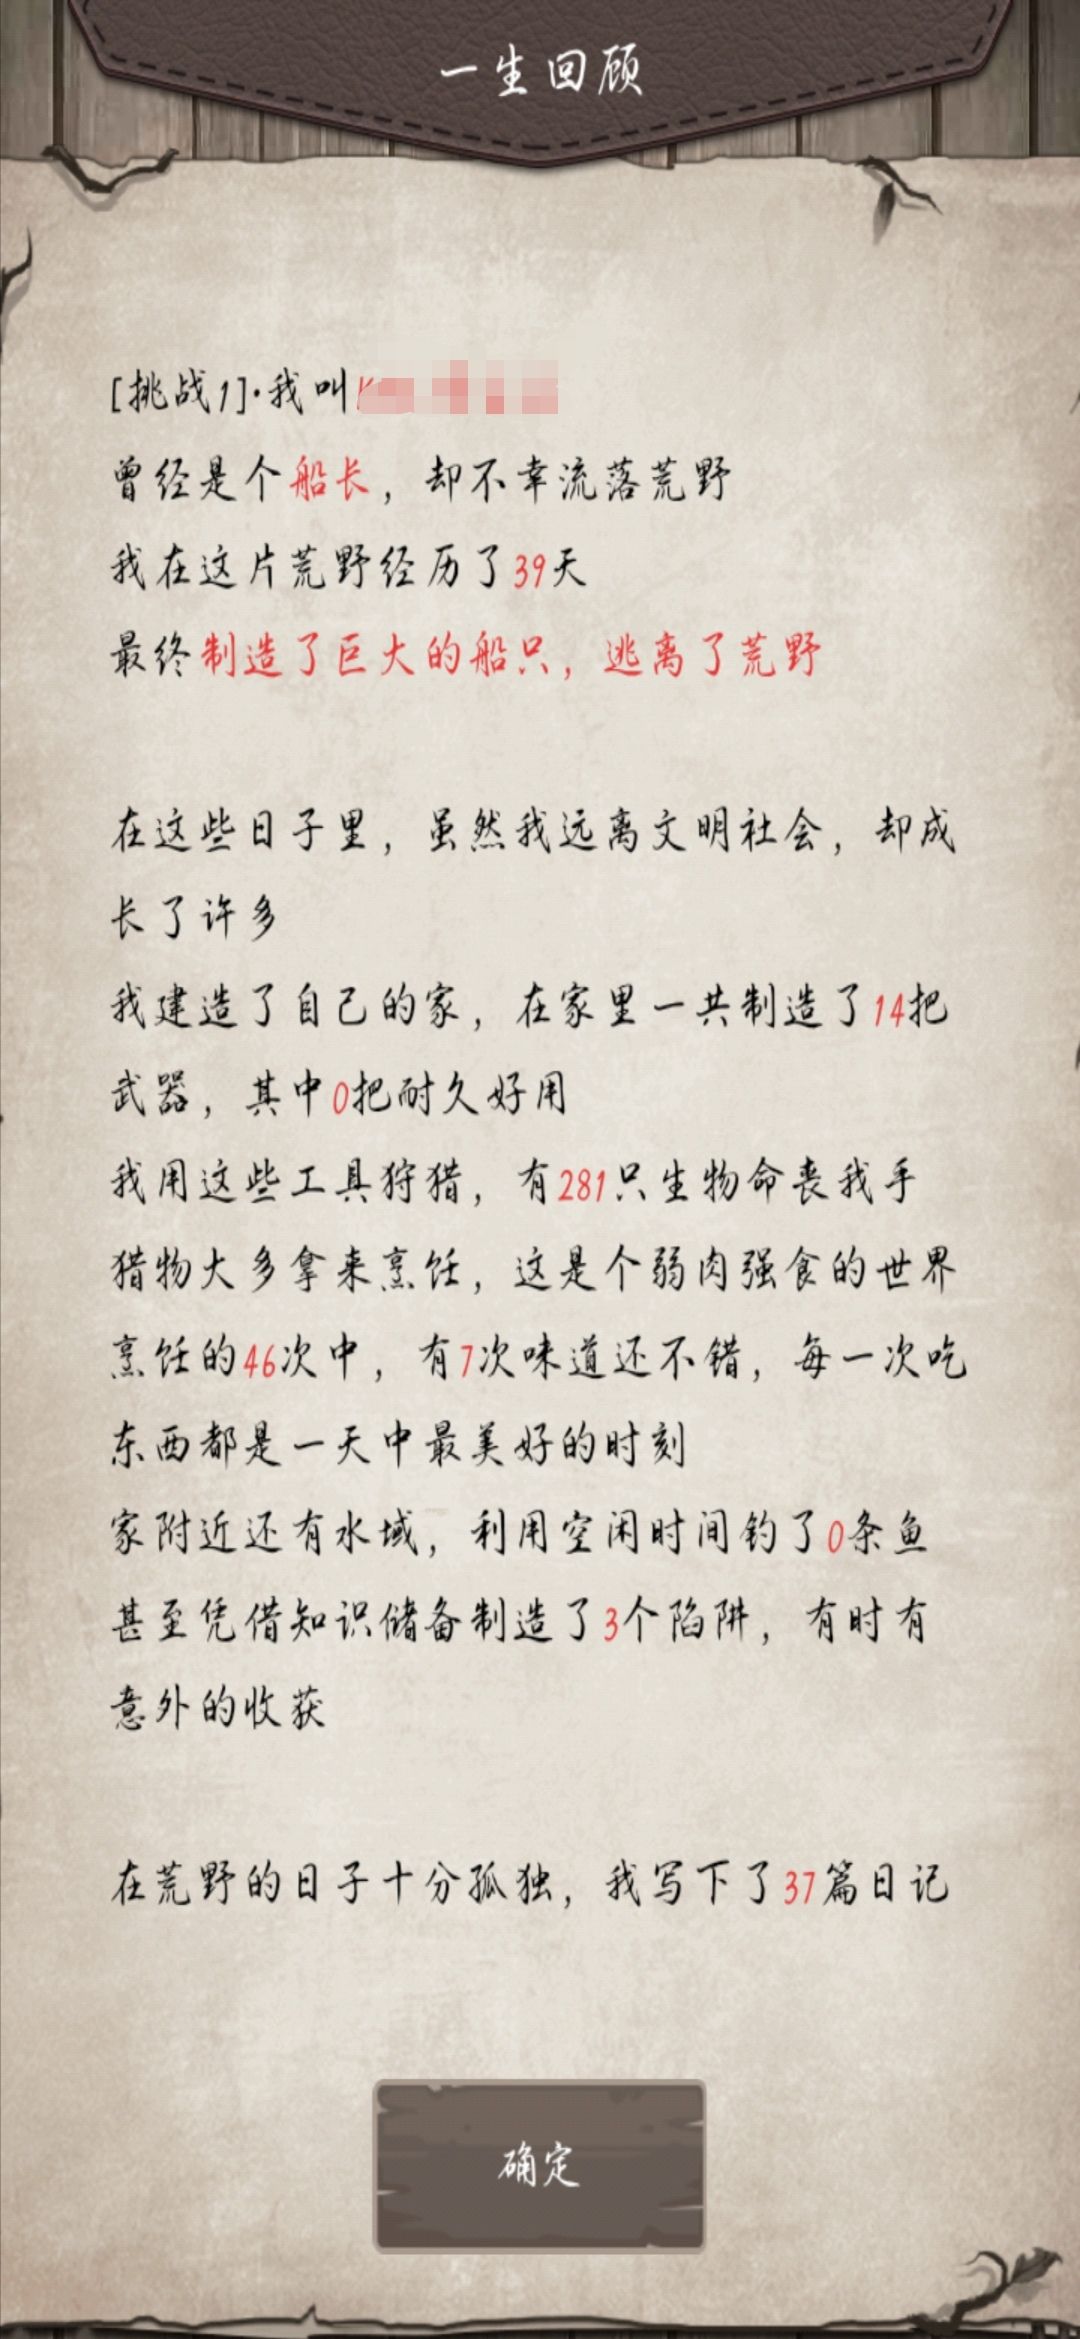 一生回顾
[挑战1]·我叫
曾经是个船长，却不幸流落荒野
我在这片荒野经历了39天
最终制造了巨大的船只，逃离了荒野
在这些日子里，虽然我远离文明社会，却成
长了许多
我建造了自己的家，在家里一共制造了14把
武器，其中0把耐久好用
我用这些工具狩猎，有281只生物命丧我手
猎物大多拿来烹饪，这是个弱肉强食的世界
烹饪的46次中，有7次味道还不错，每一次吃
东西都是一天中最美好的时刻
家附近还有水域，利用空闲时间钓了0条鱼
甚至凭借知识储备制造了3个陷阱，有时有
意外的收获
在荒野的日子十分孤独，我写下了37篇日记
确定